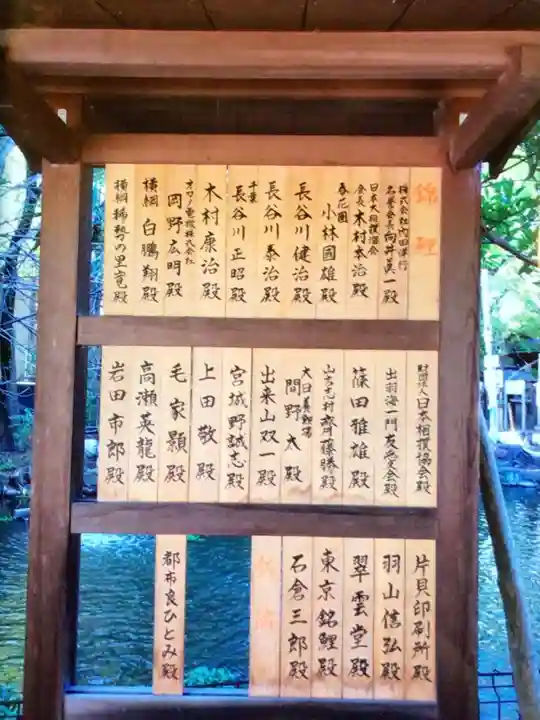 錦鯉
株式会社内田洋行
名誉会長 向井眞一殿
日本大相撲溜会
会長 木村本治殿
春花園
小林國雄殿
長谷川健治殿
長谷川泰治殿
千葉
長谷川正昭殿
木村康治殿
オカノ電機株式会社
岡野広明殿
横綱 白鵬翔殿
横綱 稀勢の里寛殿
財団法人日本相撲協会殿
出羽海一門友愛会殿
篠田雅雄殿
山古志村 齊藤勝殿
大日養鯉場
間野太殿
出来山双一殿
宮城野誠志殿
上田敬殿
毛家顥殿
高瀬英龍殿
岩田市郎殿
片貝印刷所殿
羽山信弘殿
翠雲堂殿
東京銘鯉殿
石倉三郎殿
都布良ひとみ殿